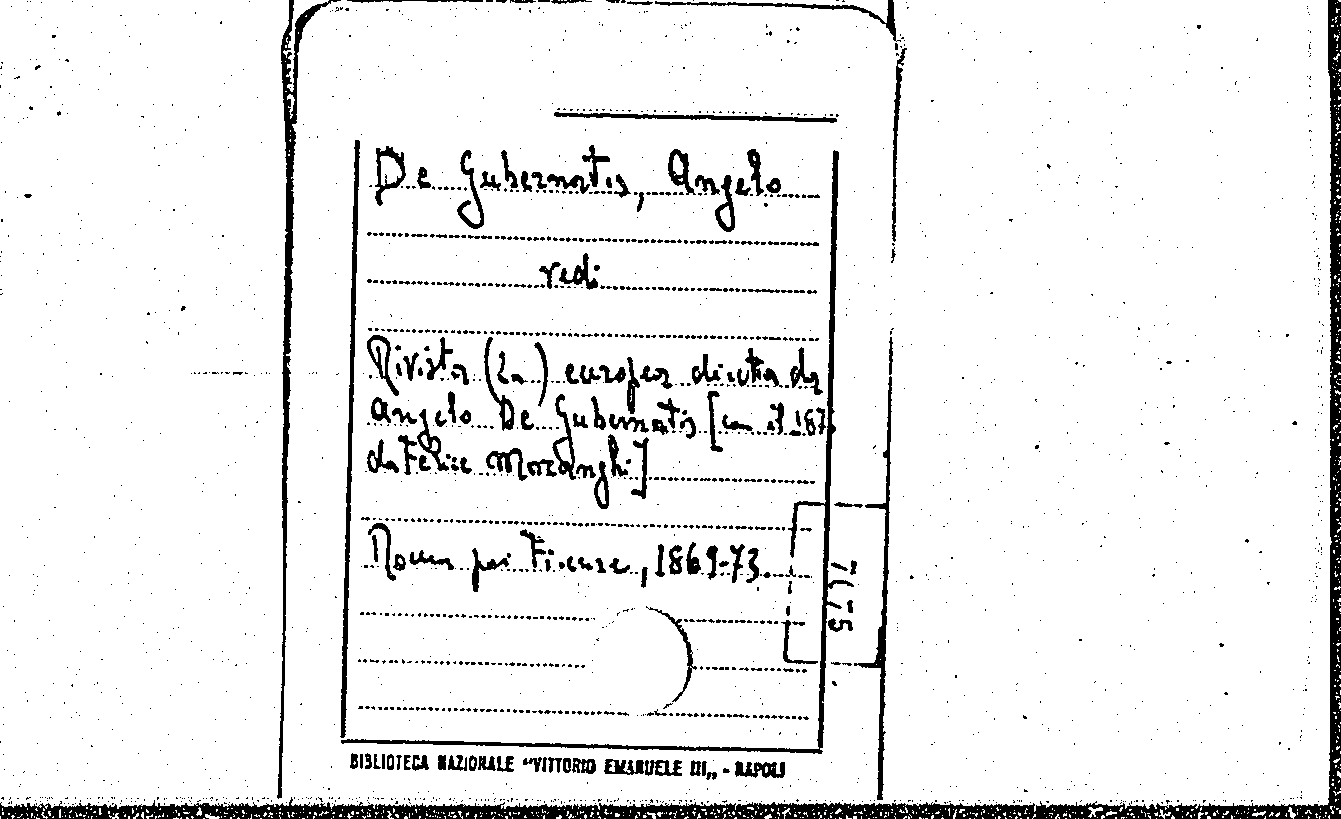 De Gubernatis, Angelo
vedi
Rivista (La) europea diretta da
Angelo De Gubernatis [con il 187
da Felice Moranghi]
Roma poi Firenze, 1869-73.
7(75
BIBLIOTECA NAZIONALE "VITTORIO EMANUELE III„ - NAPOLI